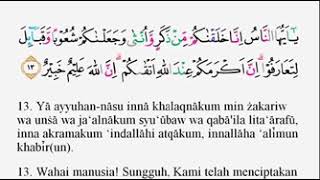 يَا أَيُّهَا النَّاسُ إِنَّا خَلَقْنٰكُمْ مِّنْ ذَكَرٍ وَّاُنْثٰى وَجَعَلْنٰكُمْ شُعُوْبًا وَّقَبَاۤىِٕلَ
لِتَعَارَفُوْا ۚ اِنَّ اَكْرَمَكُمْ عِنْدَ اللّٰهِ اَتْقٰىكُمْ ۗ اِنَّ اللّٰهَ عَلِيْمٌ خَبِيْرٌ ١٣
13. Yā ayyuhan-nāsu innā khalaqnākum min żakariw
wa unṡā wa ja‘alnākum syu‘ūbaw wa qabā'ila lita‘ārafū,
inna akramakum ‘indallāhi atqākum, innallāha ‘alīmun
khabīr(un).
13. Wahai manusia! Sungguh, Kami telah menciptakan